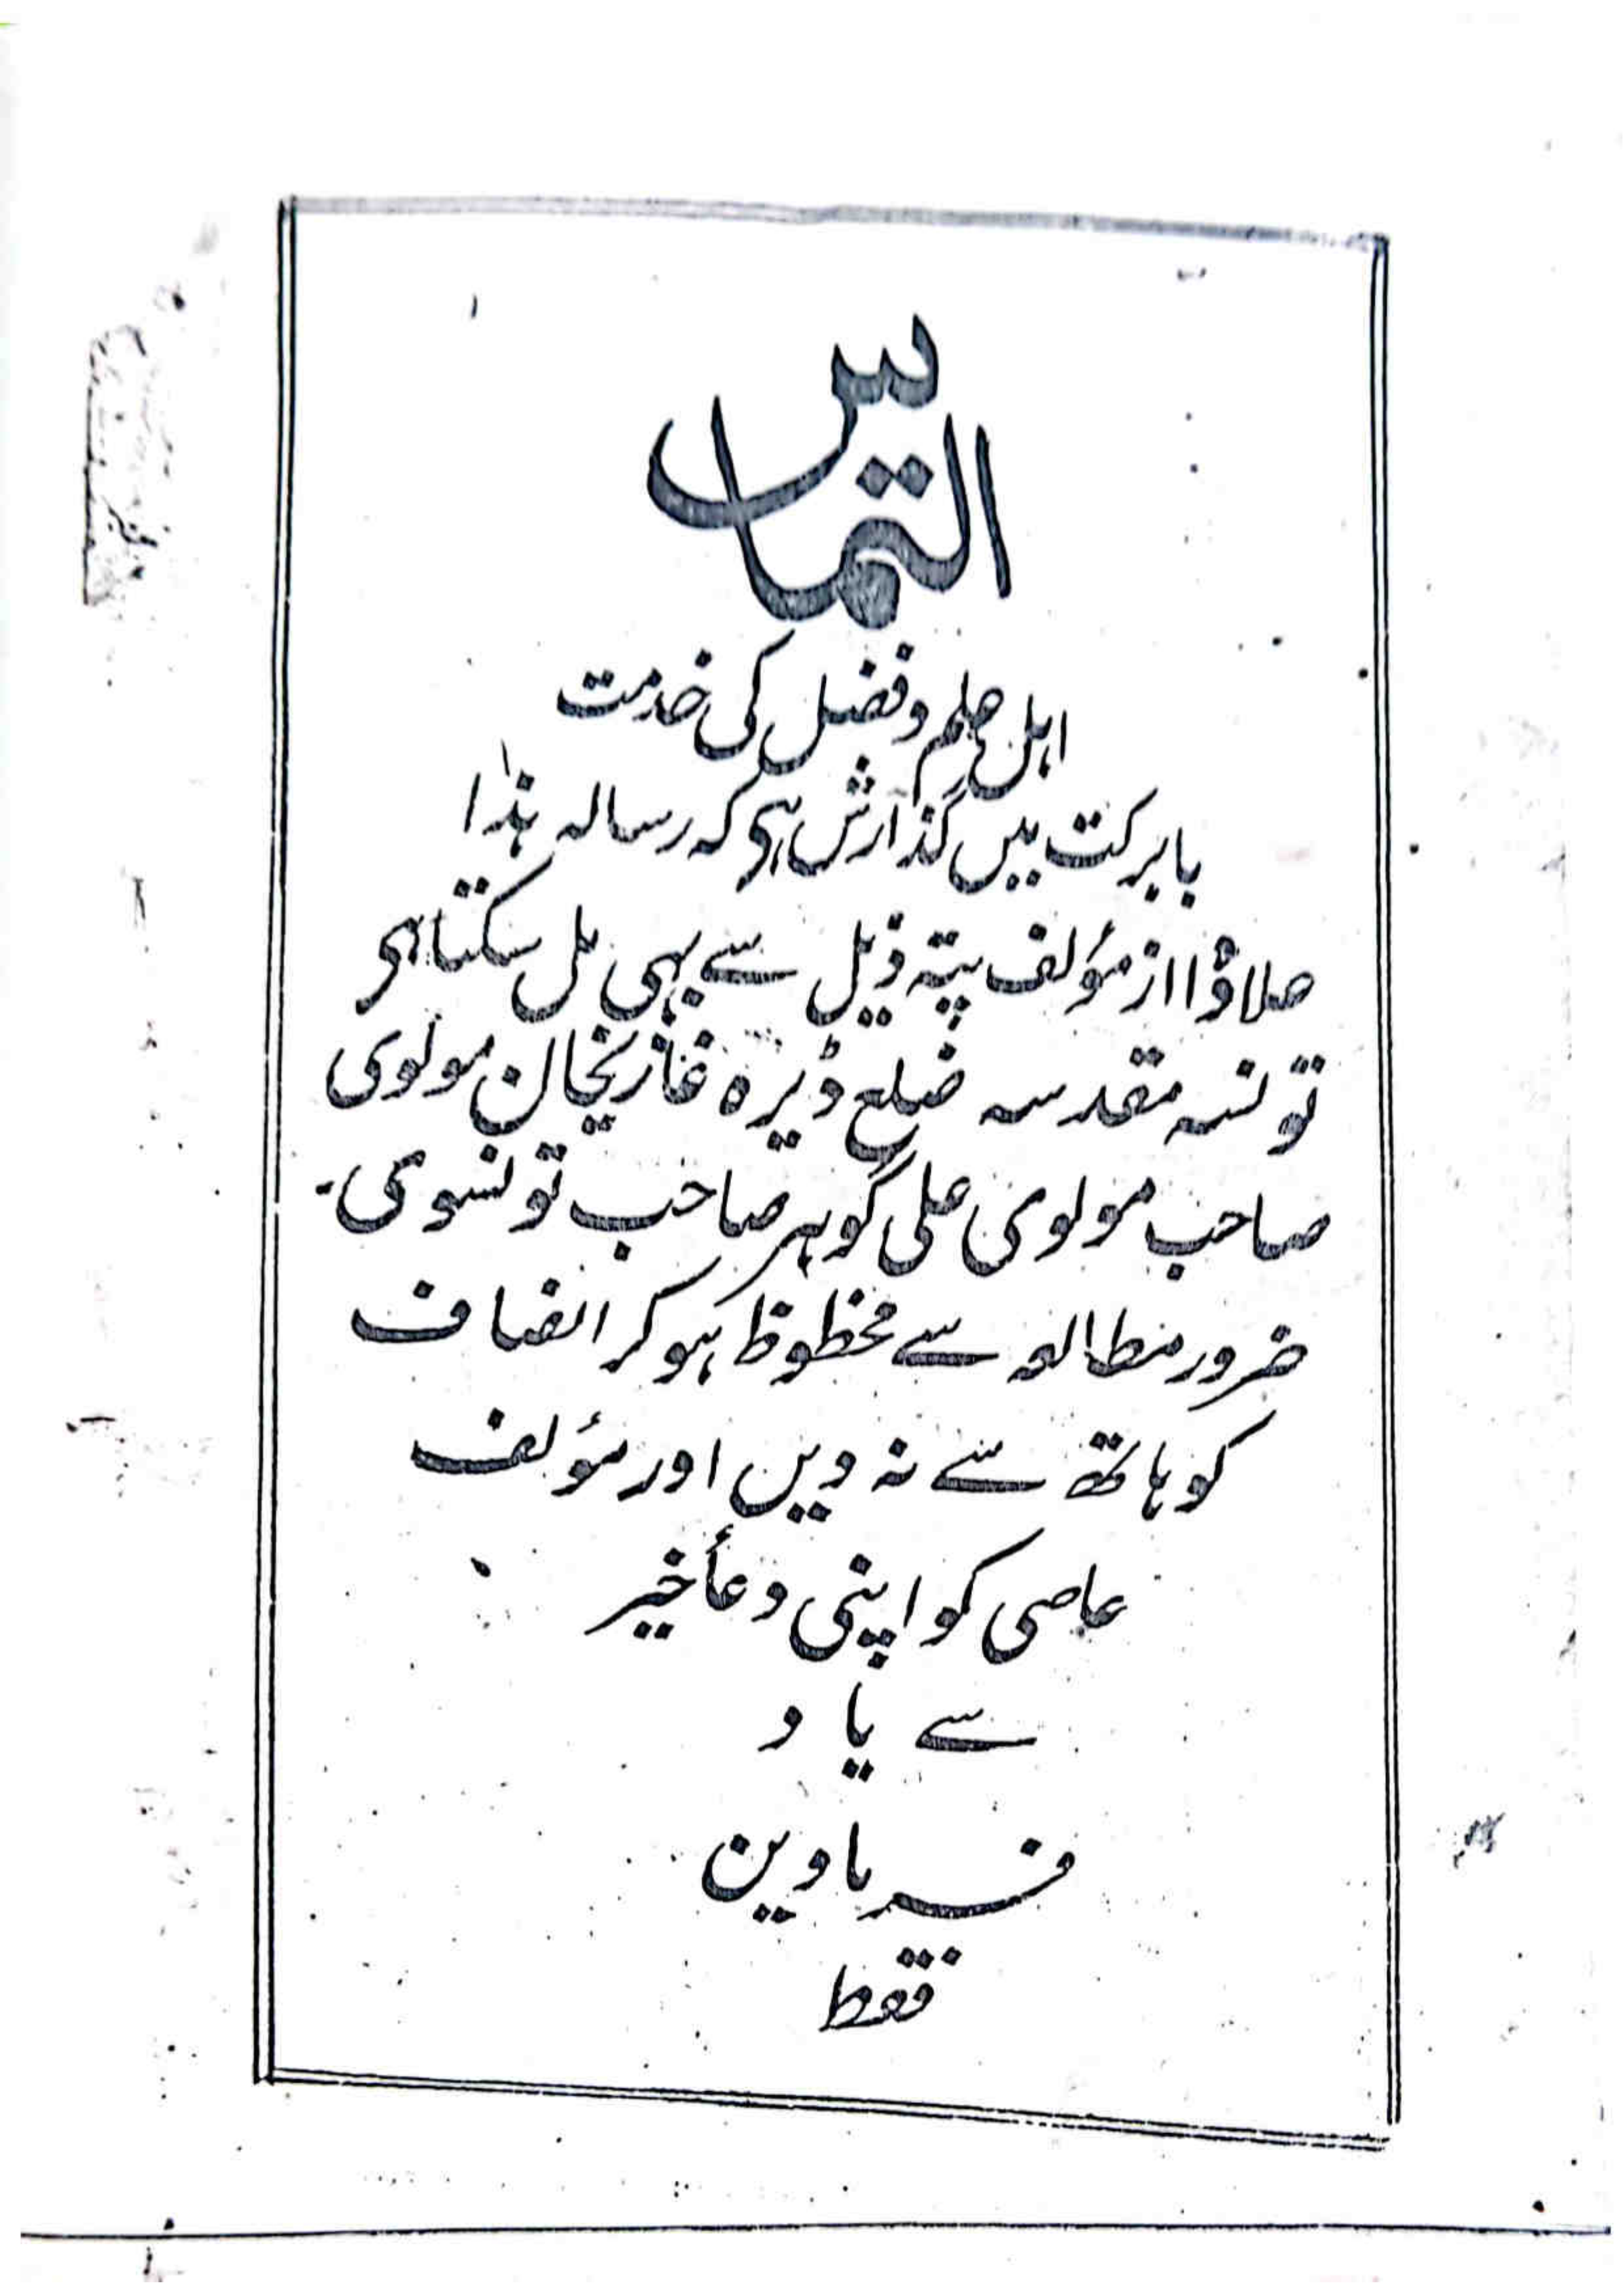 التماس
اہل حلم و فضل کی خدمت
بابرکت میں گذارش ہی کہ رسالہ ہذٰا
علاوہ از مؤلف پتہ ذیل سے بہی مل سکتا ہی
تونسہ مقدسہ ضلع ڈیرہ غازیخان مولوی
صاحب مولوی علی گوہر صاحب تونسوی۔
ضرور مطالعہ سے محظوظ ہو کر انصاف
کو ہاتھ سے نہ دیں اور مؤلف
عاصی کو اپنی دعأ خیر
سے یاد
فرماوین
فقط